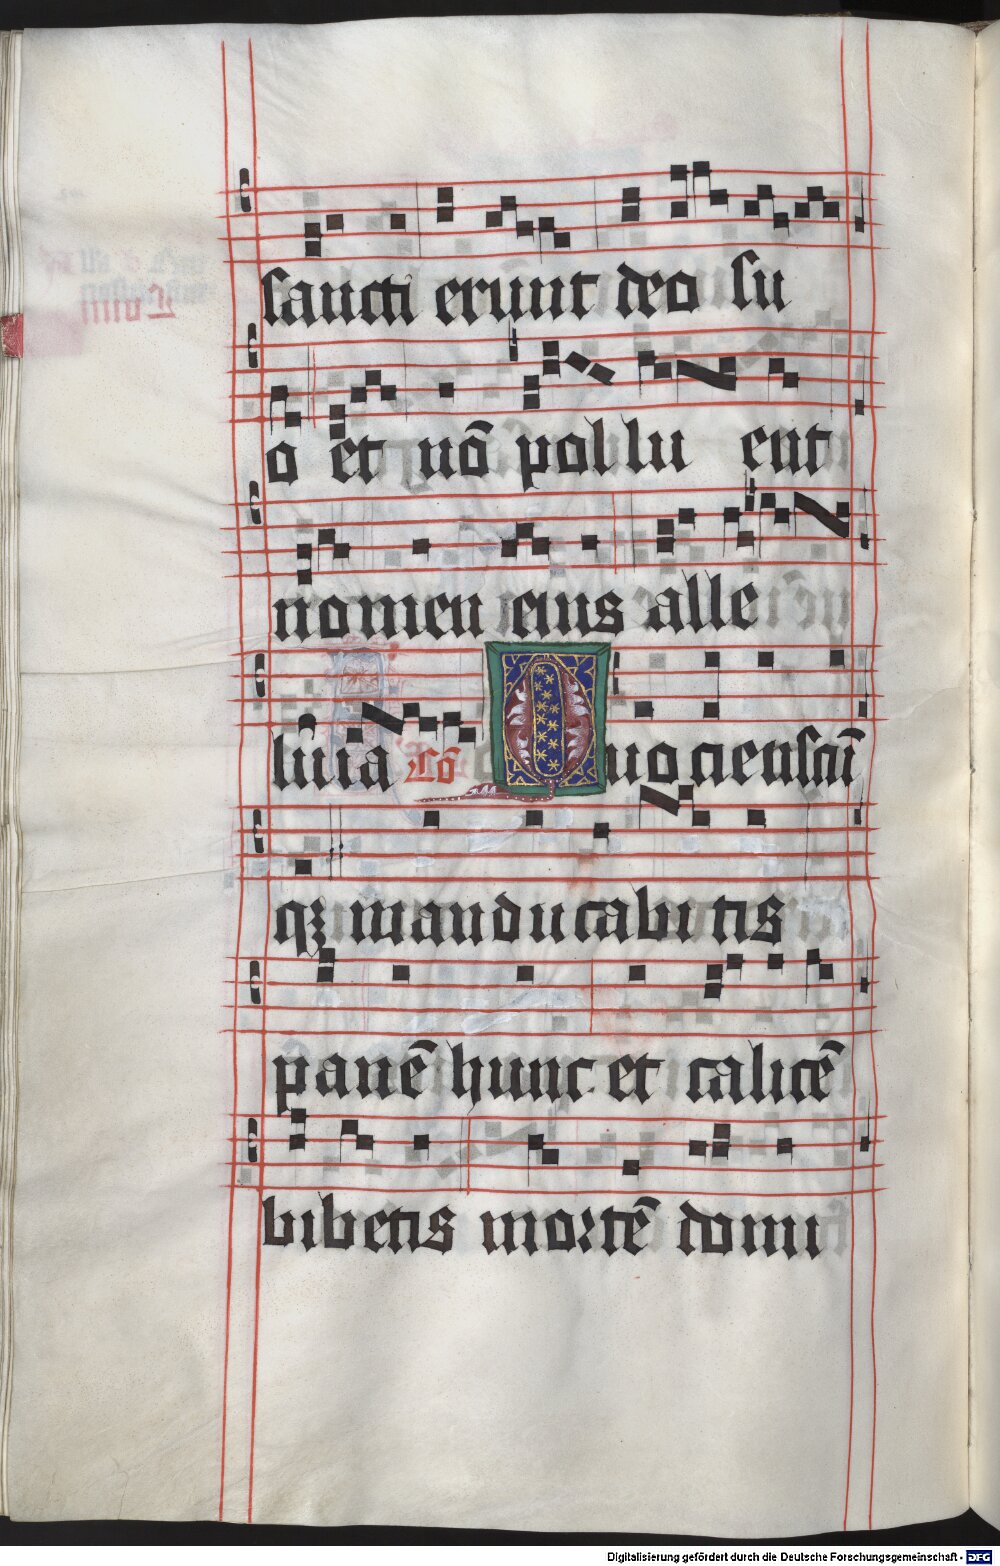 sancti erunt deo su
o et nō pollu ent
nomen eius alle
luia Cō Quociensciū
qꝫ manducabitis
panē hunc et calicē
bibetis mortē domi
Digitalisierung gefördert durch die Deutsche Forschungsgemeinschaft - DFG